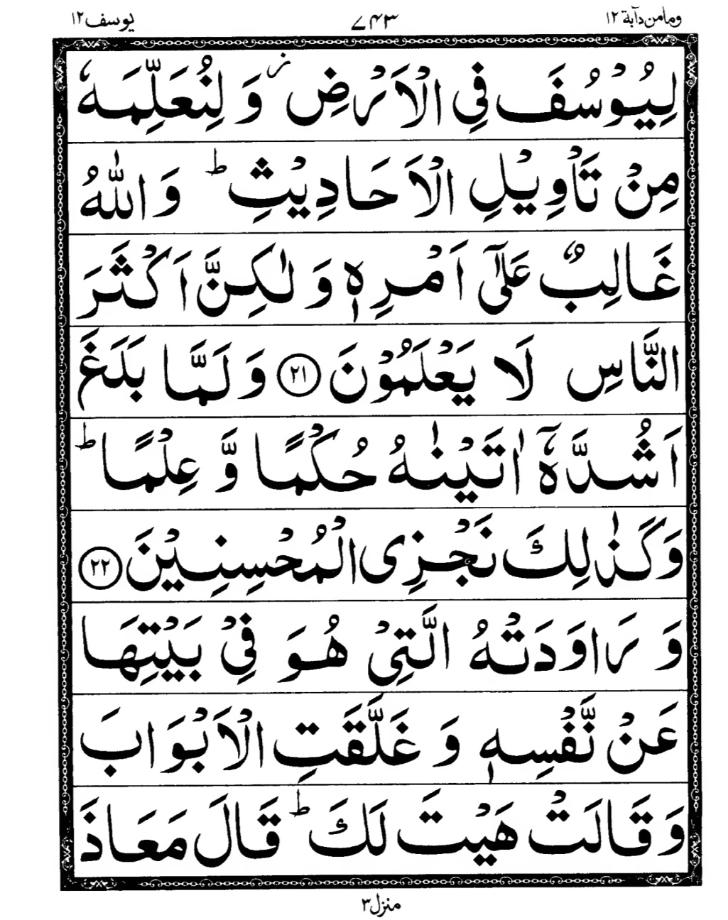 وما من دآبة ۱۲ ۷۴۳ یوسف ۱۲
لِيُوْسُفَ فِي الْاَرْضِ ز وَ لِنُعَلِّمَهٗ
مِنْ تَاْوِيْلِ الْاَحَادِيْثِ ؕ وَاللّٰهُ
غَالِبٌ عَلٰٓى اَمْرِهٖ وَلٰكِنَّ اَكْثَرَ
النَّاسِ لَا يَعْلَمُوْنَ ۲۱ وَلَمَّا بَلَغَ
اَشُدَّهٗٓ اٰتَيْنٰهُ حُكْمًا وَّ عِلْمًا ؕ
وَكَذٰلِكَ نَجْزِى الْمُحْسِنِيْنَ ۲۲
وَ رَاوَدَتْهُ الَّتِيْ هُوَ فِيْ بَيْتِهَا
عَنْ نَّفْسِهٖ وَ غَلَّقَتِ الْاَبْوَابَ
وَقَالَتْ هَيْتَ لَكَ ؕ قَالَ مَعَاذَ
منزل۳